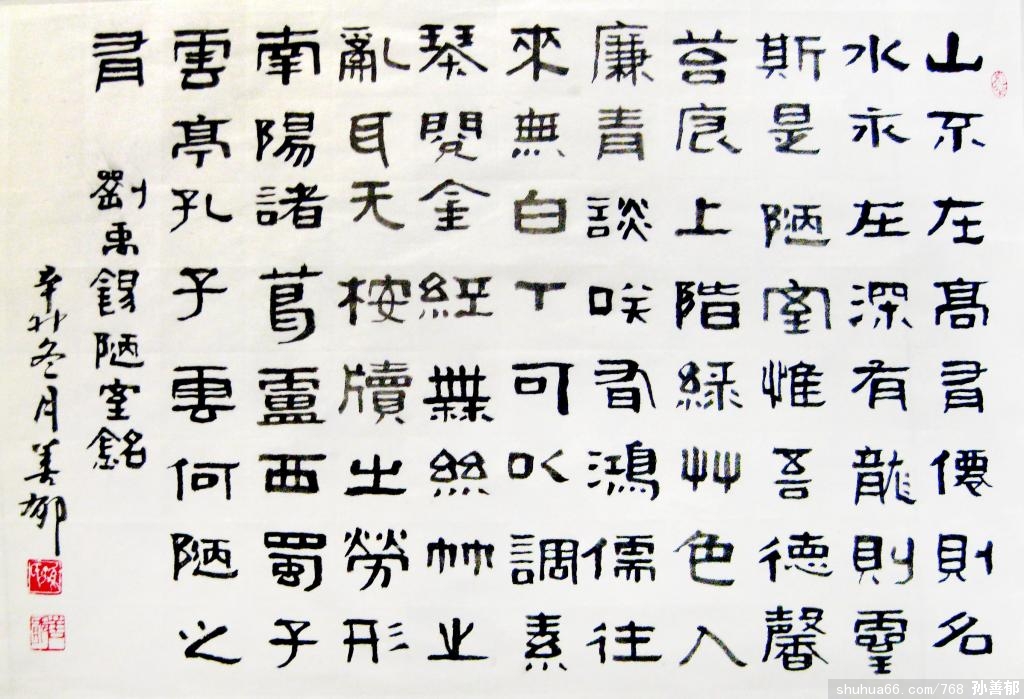 山不在高有僊則名
水不在深有龍則靈
斯是陋室惟吾德馨
苔痕上階綠艸色入
廉青談咲有鴻儒往
來無白丁可以調素
琴閱金經無絲竹之
亂耳无桉牘之勞形
南陽諸葛盧西蜀子
雲亭孔子雲何陋之
有
劉禹錫陋室銘
辛卯冬月善郁
shuhua66.com/768 孙善郁